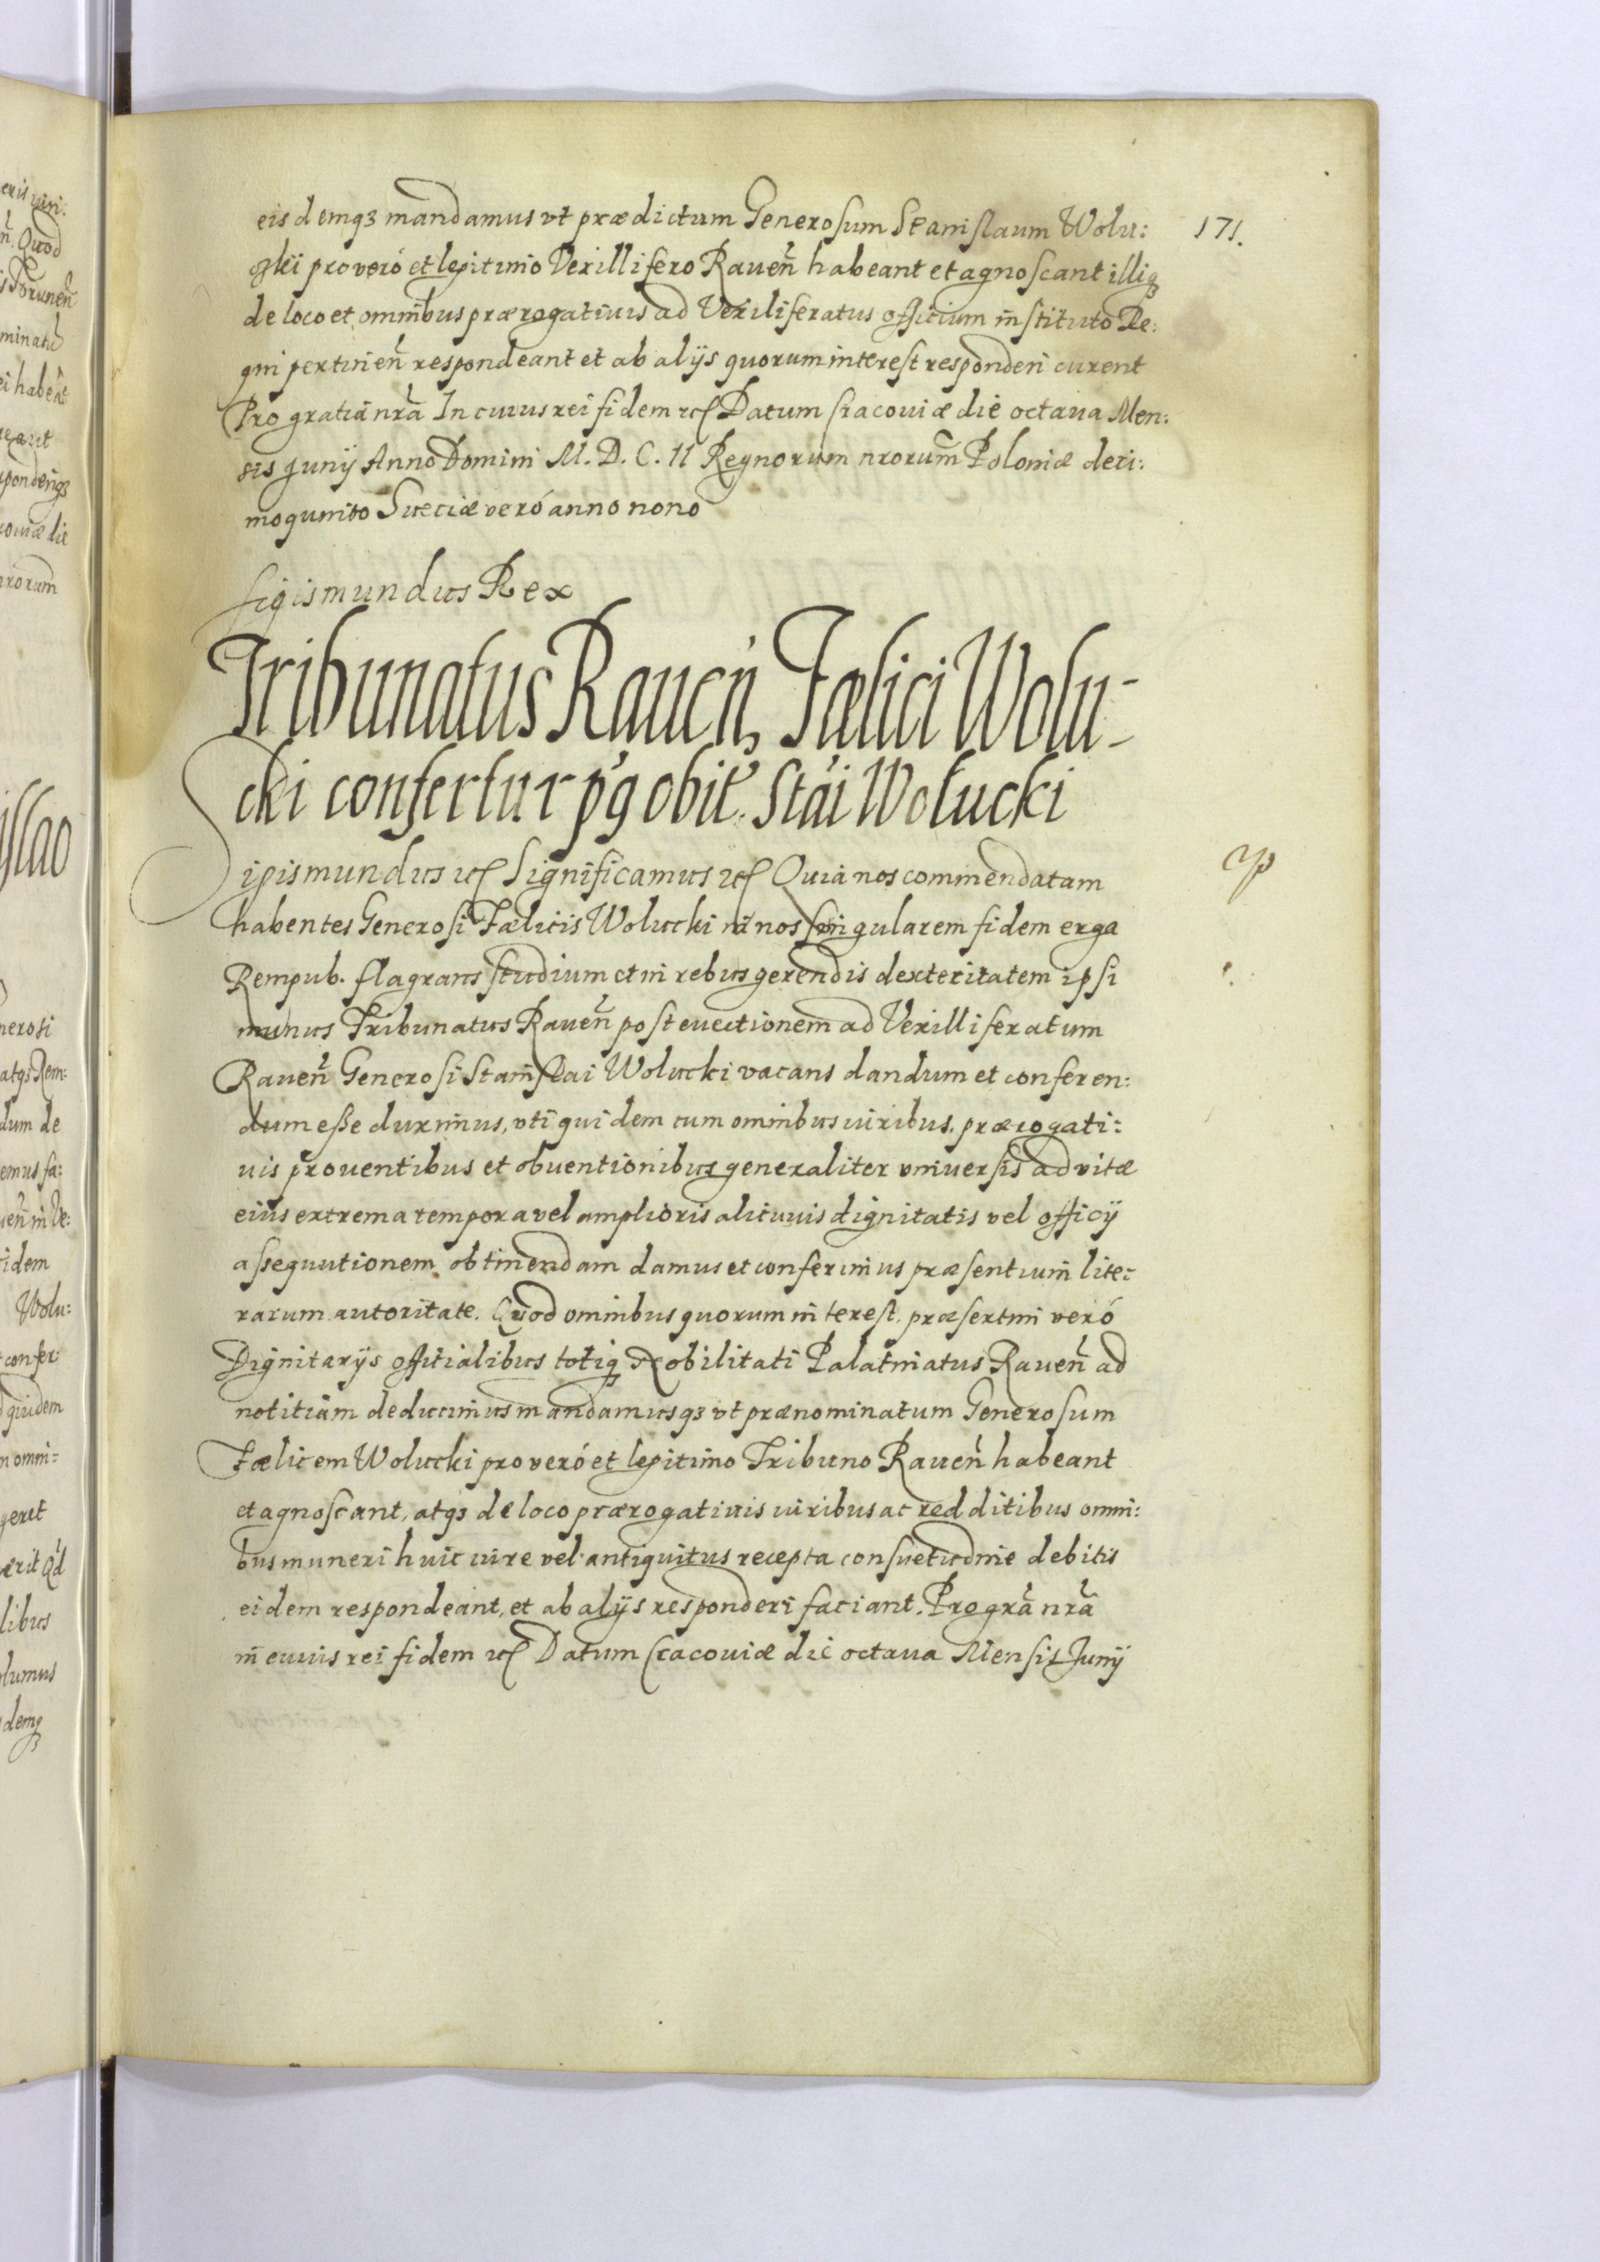 171.
eisdemqȝ mandamus vt prædictum Generosum Stanislaum Wolu:
ckí pro veró et legitimo Vexillifero Raueñ habeant et agnoscant illiqȝ
de loco et omnibus prærogatiuis ad Vexiliferatus officium instituto Re:
gni pertineñ respondeant et ab alijs quorum interest responderi curent
Pro gratia nrã In cuius rei fidem etc Datum Cracouiæ die octaua Men:
sis Junij Anno Domini M. D. C. II Regnorum nrorum Poloniæ deci:
moquinto Sueciæ veró anno nono
Sigismundus Rex
Tribunatus Raueñ, Fælici Wolu-
cki confertur pꝰg obitꝰ. Stãi Wolucki
Sigismundus etc Significamus etc Quia nos commendatam
habentes Generosi Fælicis Wolucki in nos singularem fidem erga
Rempub. flagrans studium et in rebus gerendis dexteritatem ipsi
munus Tribunatus Raueñ post euectionem ad Vexilliferatum
Raueñ Generosi Stanislai Wolucki vacans dandum et conferen:
dum esse duximus, vti quidem cum omnibus iuribus, prærogati:
uis prouentibus et obuentionibus generaliter vniuersis ad vitæ
eius extrema tempora vel amplioris alicuius dignitatis vel officij
assequutionem obtinendam damus et conferimus præsentium lite:
rarum autoritate. Quod omnibus quorum interest, præsertim veró
Dignitarijs officialibus totiqȝ Nobilitati Palatinatus Raueñ ad
notitiam deducimus mandamusqȝ vt prænominatum Generosum
Fælicem Wolucki pro veró et legitimo Tribuno Raueñ habeant
et agnoscant, atqȝ de loco prærogatiuis iuribus ac redditibus omni:
bus muneri huic iure vel antiquitus recepta consuetudine debitis
eidem respondeant, et ab alijs responderi faciant. Pro grã nrã
in cuius rei fidem etc Datum Cracouiæ die octaua Mensis Junij